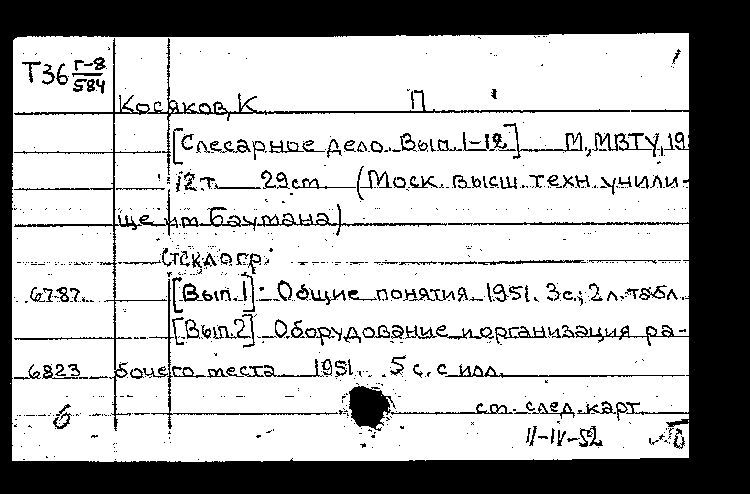 Т36 Г-8/584
Косяков, К. П.
[Слесарное дело. Вып. 1-12] М, МВТУ, 19
12 т. 29 см. (Моск. высш. техн. учили-
ще им. Баумана)
стеклогр.
6787. [Вып. 1]. Общие понятия 1951. 3 с.; 2 л. табл.
[Вып. 2] Оборудование и организация ра-
6823 бочего места 1951. 5 с. с илл.
6 см. след. карт.
11-IV-52